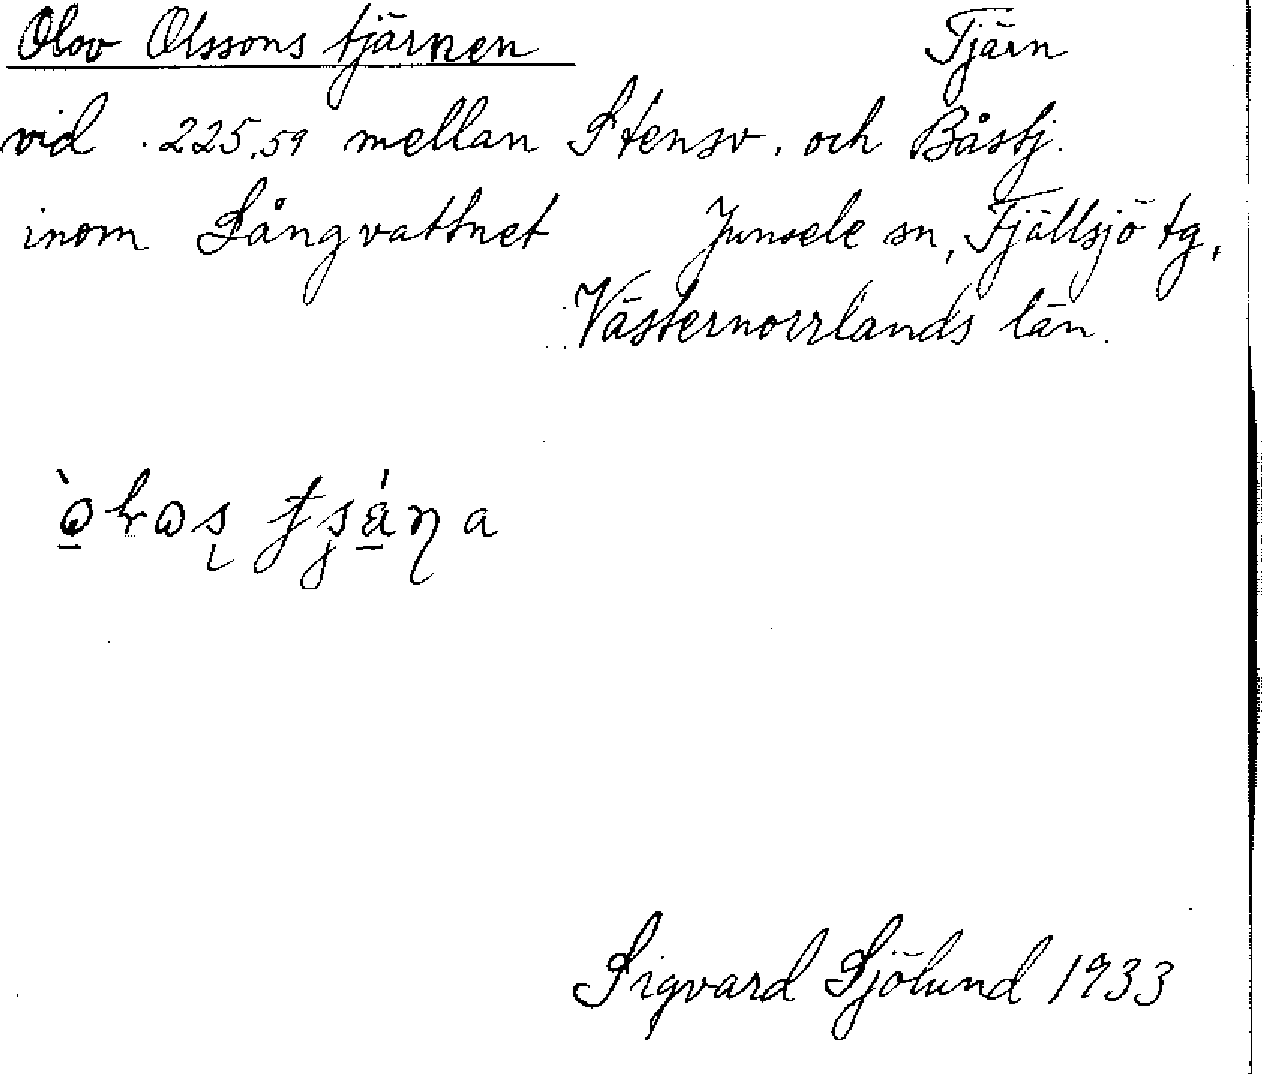 Olov Olssons tjärnen Tjärn
vid . 225,59 mellan Stensv. och Båstj.
inom Långvattnet Junsele sn, Fjällsjö tg,
Västernorrlands län.
Sigvard Sjölund 1933